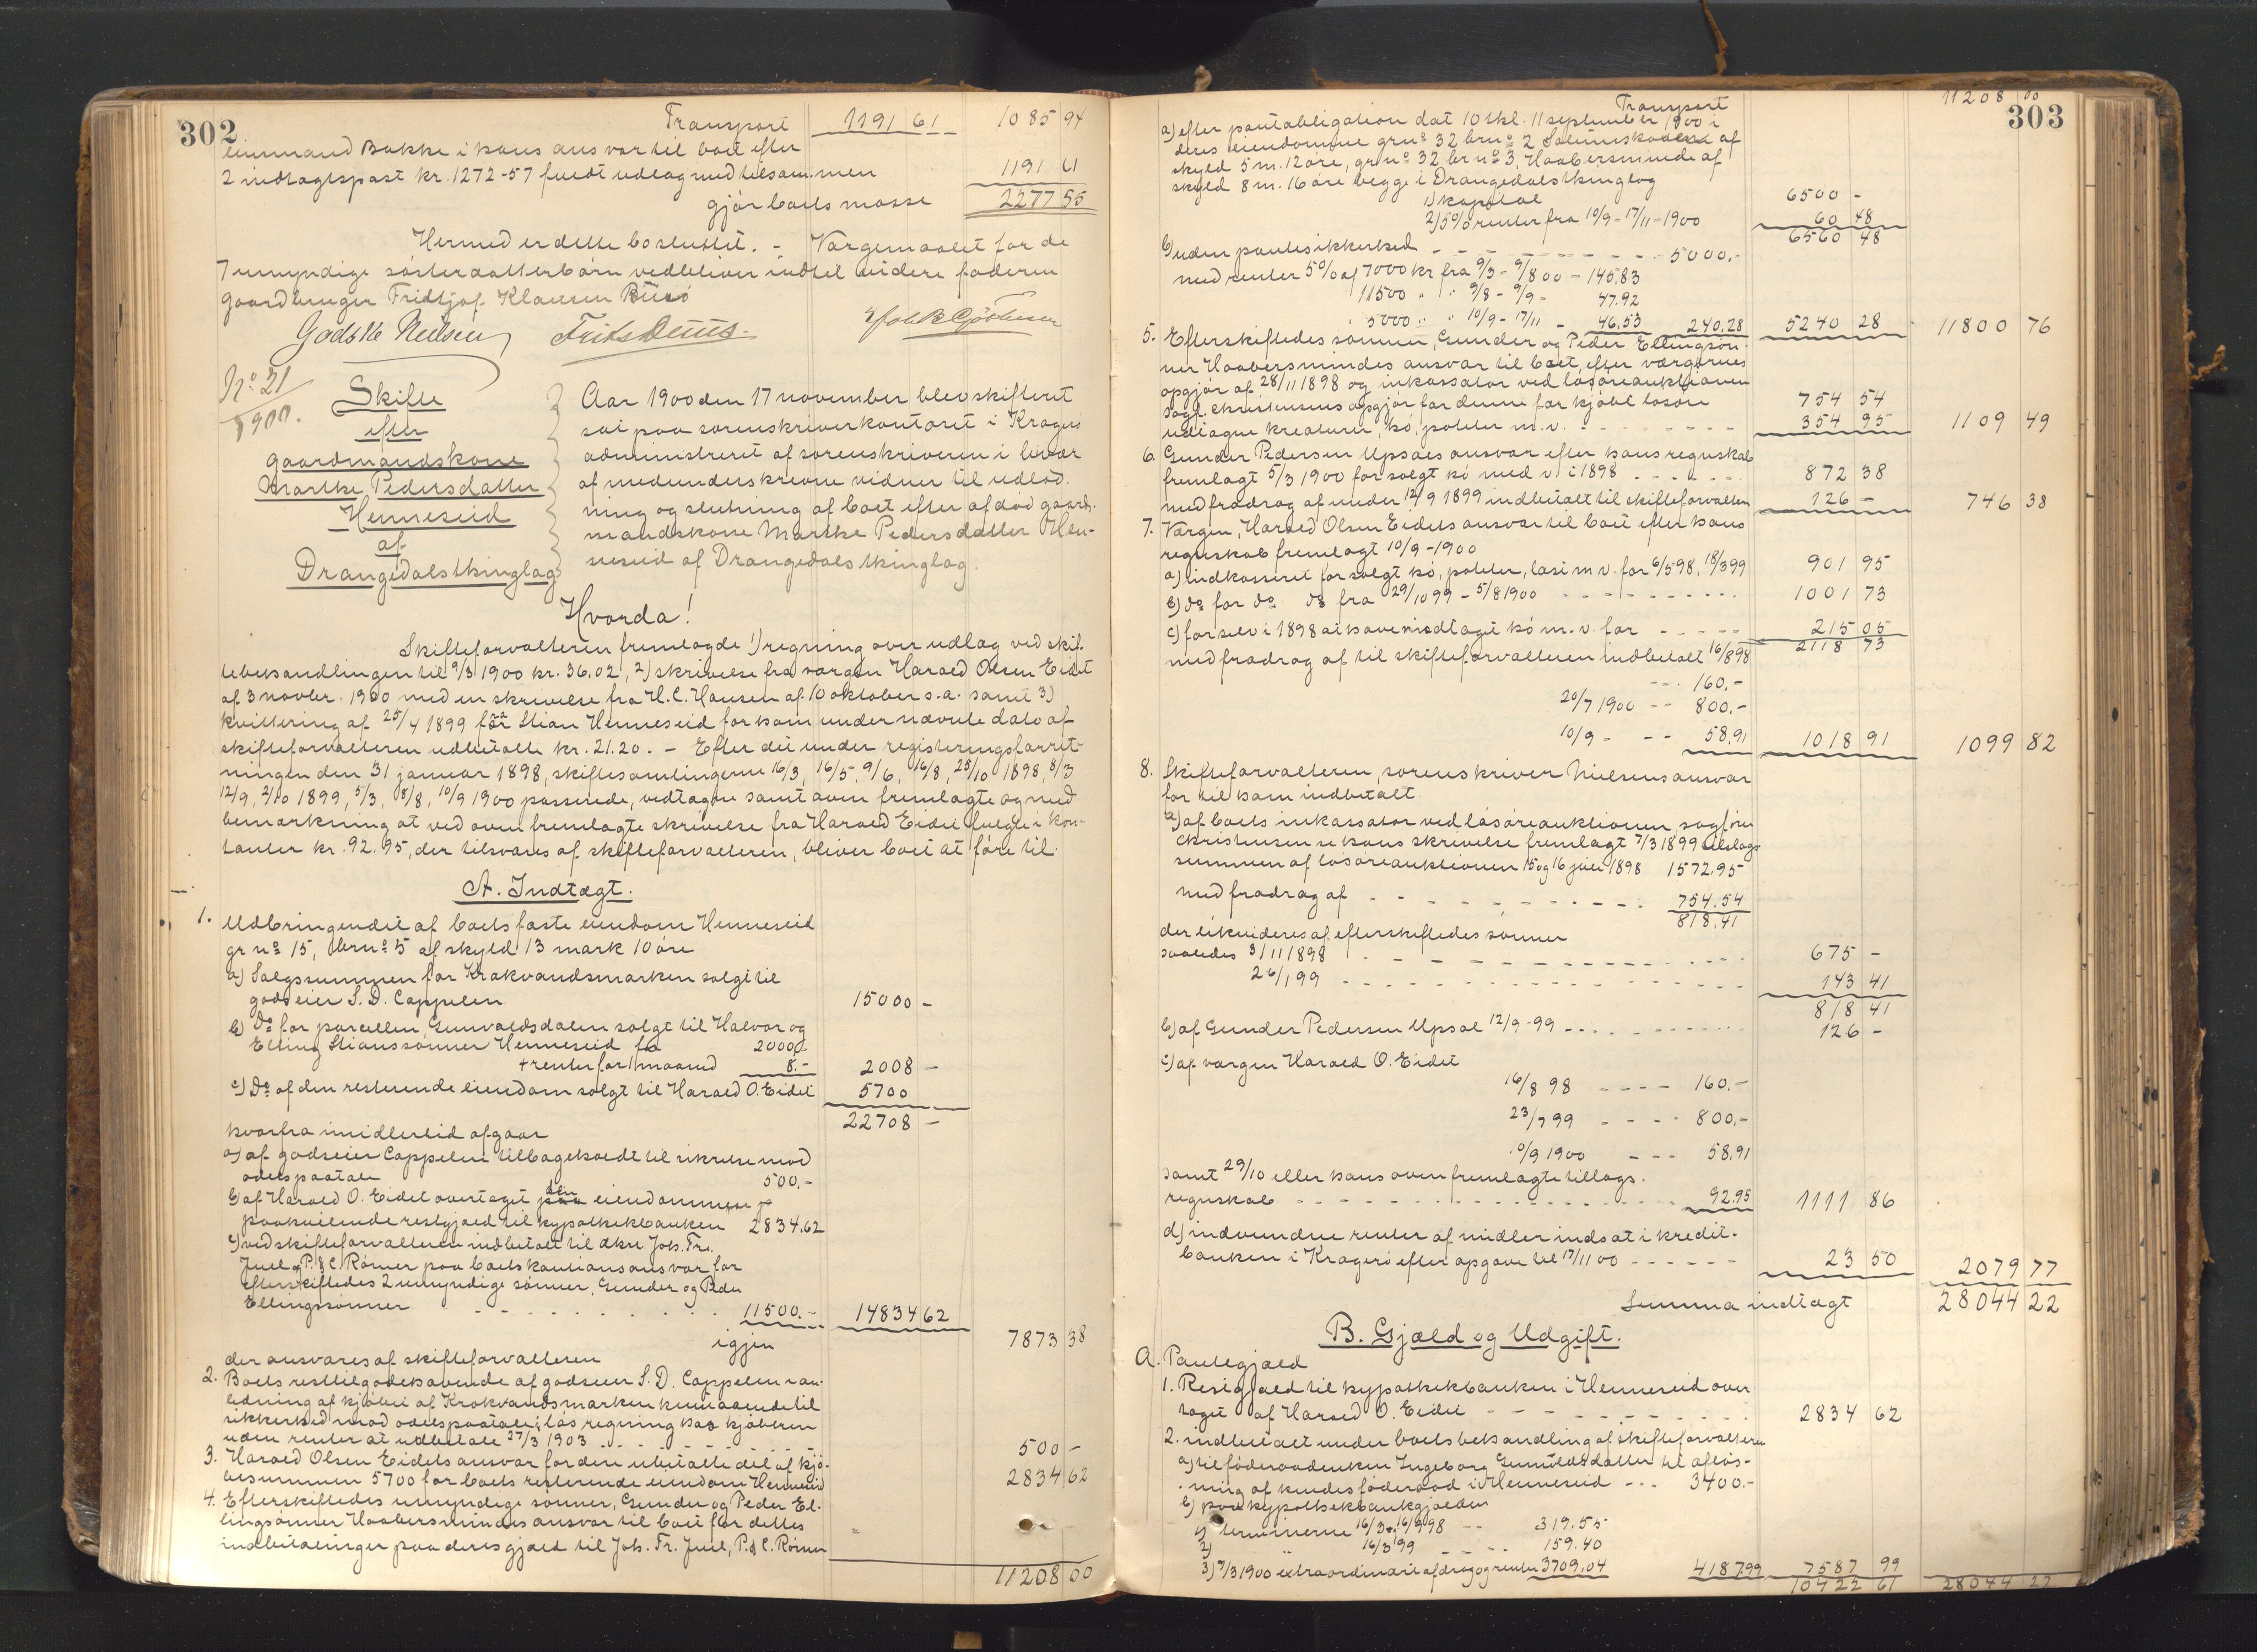 302
Transport 1191 61 1085 94
Bakke i hans ansvar til boet efter
2 indtægtspost kr. 1272-57 fuldt udlæg med tilsammen 1191 61
gjør boets masse 2277 55
Hermed er dette bo sluttet. - Værgemaalet for de
7 umyndige søsterdatterbørn vedbliver indtil videre faderen
gaardbruger Fridtjof Klausen
Godsk Nielsen,
No. 21/1900.
Skifte
efter
gaardmandskone
Marthe Pedersdatter
Henneseid
af
Drangedals thinglag
Aar 1900 den 17 november blev skifteret
sat paa sorenskriverkontoret i Kragerø
administreret af sorenskriveren i levær
af medunderskrevne vidner til udlod-
ning og slutning af boet efter afdød gaard-
mandskone Marthe Pedersdatter Hen-
neseid af Drangedals thinglag.
Hvorda!
Skifteforvalteren fremlagde 1) regning over udlæg ved skif-
tebehandlingen til 9/3 1900 kr. 36.02, 2) skrivelse fra værgen Harald Olsen Eidet
af 3 novbr. 1900 med en skrivelse fra H. C. Hansen af 10 oktober s.a. samt 3)
kvittering af 25/4 1899 fra Stian Henneseid for ham under nævnte dato af
skifteforvalteren udbetalte kr. 21.20. - Efter det under registeringsforret-
ningen den 31 januar 1898, skiftesamlingerne 16/3, 16/5, 9/6, 16/8, 25/10 1898, 8/3
12/9, 2/10 1899, 5/3, 8/8, 10/9 1900 passerede, vedtagne samt oven fremlagte og med
bemærkning at ved oven fremlagte skrivelse fra Harald Eidet fulgte i kon-
tanter kr. 92.95, der tilsvares af skifteforvalteren, bliver boet at føre til
A. Indtægt.
1. Udbringendet af boets faste eiendom Henneseid
gr no 15, br no 5 af skyld 13 mark 10 øre
a) Salgssummen for Krokvandsmarken solgt til
godseier S. D. Cappelen 15000 -
b) Do for parcellen Gunvaldsdalen solgt til Halvor og
Elling Stianssønner Henneseid for 2000.-
+ renter for 1 maaned 8.- 2008 -
c) Do af den resterende eiendom solgt til Harald O. Eidet 5700
22708 -
hvorfra imidlertid afgaar
a) af godseier Cappelen tilbageholdt til sikrelse mod
odelspaatale 500.-
b) af Harald O. Eidet overtaget den eiendommen
paahvilende restgjæld til hypothekbanken 2834.62
c) ved skifteforvalteren indbetalt til dhrr Joh. Fr.
Juel & P. & C. Rømer paa boets kautionsansvar for
efterskiftedes 2 umyndige sønner, Gunder og Peder
Ellingssønner 11500.- 14834 62
igjen 7873 38
der ansvares af skifteforvalteren
2. Boets resttilgodehavende af godseier S. D. Cappelen i an-
ledning af kjøbet af Krokvandsmarken henstaaende til
sikkerhed mod odelspaatale i løs regning hos kjøberen
uden renter at udbetale 27/3 1903 500 -
3. Harald Olsen Eidets ansvar for den ubetalte del af kjø-
besummen 5700 for boets resterende eiendom Henneseid 2834 62
4. Efterskiftedes umyndige sønner, Gunder og Peder El-
lingsønner Haabersmindes ansvar til boet for dettes
indbetalinger paa deres gjæld til Joh. Fr. Juel, P. & C. Rømer
11208 00
303
Transport 11208 00
a) efter pantobligation dat 10 thl. 11 september 1900 i
deres eiendomme gr no 32 br no 2 af
skyld 5 m. 12 øre, gr no 32 br no 3, Haabersminde af
skyld 8 m. 16 øre begge i Drangedals thinglag
1) kapital 6500 -
2) 5% renter fra 10/9 - 17/11 - 1900 60 48
6560 48
b) uden pantesikkerhed 5000.-
med renter 5% af 7000 kr fra 9/3 - 9/8 00 - 145,83
11500 " " 9/8 - 9/9 - 47.92
5000 " " 10/9 - 17/11 - 46,53 240,28 5240 28 11800 76
5. Efterskiftedes sønner, Gunder og Peder Ellingsøn-
ner Haabersmindes ansvar til boet, efter værgernes
opgjør af 28/11 1898 og inkassator ved løsøreauktionen
sagf. Christensens opgjør for denne for kjøbt løsøre 754 54
udtagne kreaturer, hø, poteter m. v. 354 95 1109 49
6. Gunder Pedersen Upsals ansvar efter hans regnskab
fremlagt 5/3 1900 for solgt hø med v i 1898 872 38
med fradrag af under 12/9 1899 indbetalt til skifteforvalteren 126 - 746 38
7. Værgen, Harald Olsen Eidets ansvar til boet efter hans
regnskab fremlagt 10/9 - 1900
a) indkasseret for solgt hø, poteter, m. v. for 6/5 98, 18/3 99 901 95
b) do for do do fra 29/10 99 - 5/8 1900 1001 73
c) for selv i 1898 at have modtaget hø m. v. for 215 05
2118 73
med fradrag af til skifteforvalteren indbetalt 16/8 98
160.-
20/7 1900 -- 800.-
10/9 - -- 58,91 1018 91 1099 82
8. Skifteforvalteren, sorenskriver Nielsens ansvar
for til ham indbetalt
a) af boets inkassator ved løsøreauktionen, sagfører
Christensen se hans skrivelse fremlagt 7/3 1899 tilslags-
summen af løsøreauktionen 15 og 16 juli 1898 1572.95
med fradrag af 754.54
818,41
der likvideres af efterskiftedes sønner
saaledes 3/11 1898 675 -
26/1 99 143 41
818 41
b) af Gunder Pedersen Upsal 12/9 - 99 126 -
c) af værgen Harald O. Eidet
16/8 98 ---- 160.-
23/7 99 ---- 800.-
10/9 1900 --- 58,91
samt 29/10 eller hans oven fremlagte tillægs-
regnskab 92.95 1111 86
d) indvundne renter af midler indsat i kredit-
banken i Kragerø efter opgave til 17/11 00 23 50 2079 77
Summa indtægt 28044 22
B. Gjæld og Udgift.
A. Pantegjæld
1. Restgjæld til hypothekbanken i Henneseid over
taget af Harald O. Eidet 2834 62
2. indbetalt under boets behandling af skifteforvalteren
a) til føderaadenken Ingeborg Gunuldsdatter til afløs-
ning af hendes føderaad i Henneseid --- 3400.-
b) paa hypothekbankgjælden
1) terminerne 16/3 & 16/9 98 -- 319.55
2) " 16/3 99 ---- 159.40
3) 7/3 1900 extraordinært afdrag og renter 3709.04 4187.99 7587 99
10422 61 28044 22